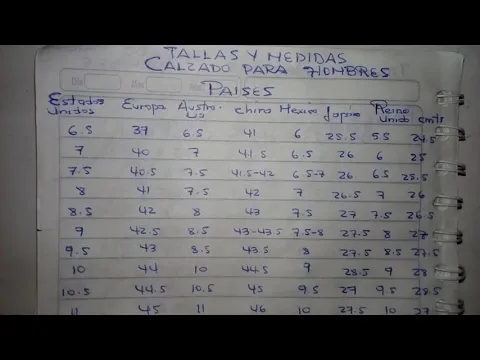 TALLAS Y MEDIDAS
CALZADO PARA HOMBRES
PAISES
Estados Unidos Europa Austra-lia China Mexico Japón Reino Unido cmts
6.5 37 6.5 41 6 25.5 5.5 24.5
7 40 7 41.5 6.5 26 6 25
7.5 40.5 7.5 41.5-42 6.5-7 26 6.5 25.5
8 41 7.5 42 7 26.5 7 26
8.5 42 8 43 7.5 27 7.5 26.5
9 42.5 8.5 43-43.5 7.5-8 27.5 8 27
9.5 43 8.5 43.5 8 27.5 8.5 27.5
10 44 10 44.5 9 28.5 9 28
10.5 44.5 10.5 45 9.5 27 9.5 28.5
11 45 11 46 10 27.5 10 27